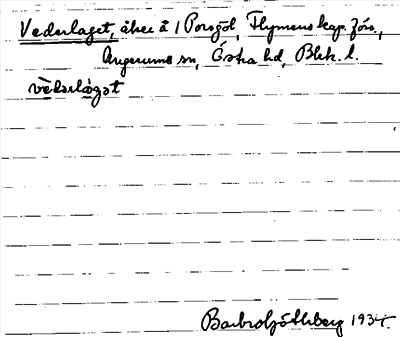 Vederlaget, åker å 1 Porsgöl, Flymens kap. förs.,
Augerums sn, Östra hd, Blek. l.
vèdərlágət
Barbro Göthberg 1934.